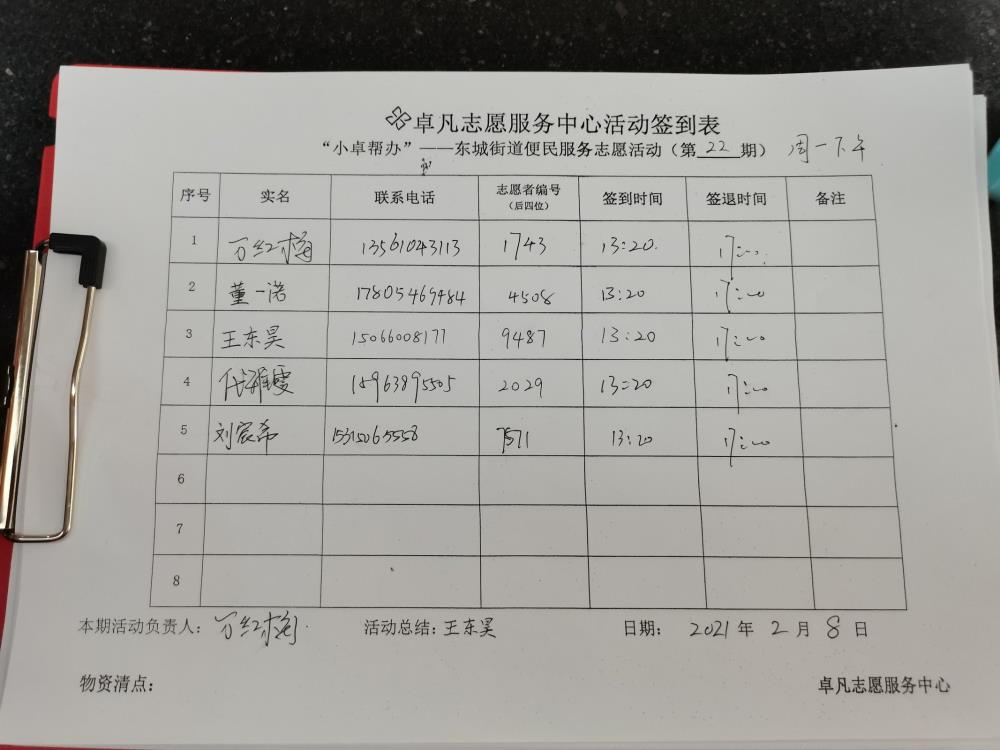 卓凡志愿服务中心活动签到表
“小卓帮办”——东城街道便民服务志愿活动（第22期） 周一下午
序号 实名 联系电话 志愿者编号（后四位） 签到时间 签退时间 备注
1 万红梅 13561043113 1743 13:20. 17:00.
2 董一诺 17805469484 4508 13:20 17:00
3 王东昊 15066008177 9487 13:20 17:00
4 代 15963895505 2029 13:20 17:00
5 刘宸希 15315065558 7571 13:20 17:00
6
7
8
本期活动负责人：万红梅 活动总结：王东昊 日期： 2021年 2月 8日
物资清点： 卓凡志愿服务中心